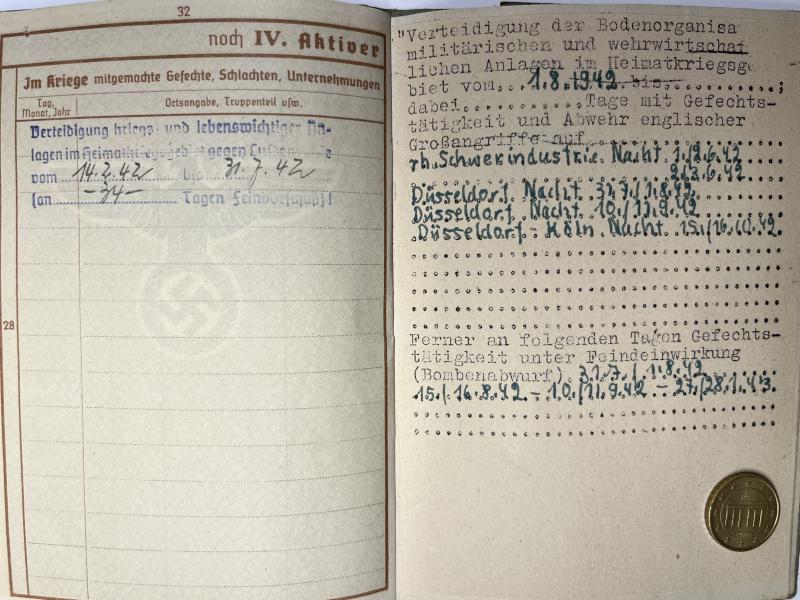 32
noch IV. Aktiver
Im Kriege mitgemachte Gefechte, Schlachten, Unternehmungen
Tag, Monat, Jahr
Ortsangabe, Truppenteil usw.
Verteidigung kriegs- und lebenswichtiger An-
lagen im Heimatkriegsgebiet gegen
vom 14.2.42 bis 31.7.42
(an -34- Tagen Feindbeschuß)!
28
"Verteidigung der Bodenorganisa
militärischen und wehrwirtschaf
lichen Anlagen im Heimatkriegsge
biet vom 1.8.1942 bis ;
dabei Tage mit Gefechts-
tätigkeit und Abwehr englischer
Großangriffe auf
rh. Schwerindustrie. Nacht 1./2.6.42
2./3.6.42
Düsseldorf. Nacht 31.7./1.8.42.
Düsseldorf. Nacht 10./11.9.42
Düsseldorf - Köln Nacht 15./16.10.42.
Ferner an folgenden Tagen Gefechts-
tätigkeit unter Feindeinwirkung
(Bombenabwurf) 31.7./1.8.42
15./16.8.42 - 10./11.9.42 - 27./28.1.43.